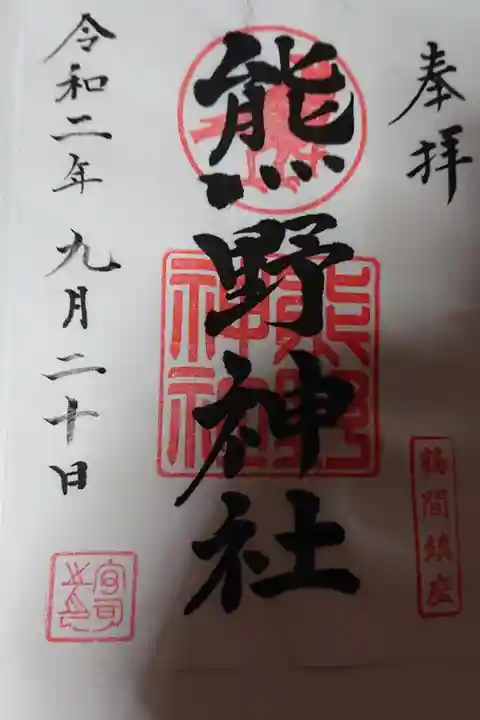 奉拝
鶴間鎮座
熊野神社
熊野
神社
令和二年九月二十日
宮司